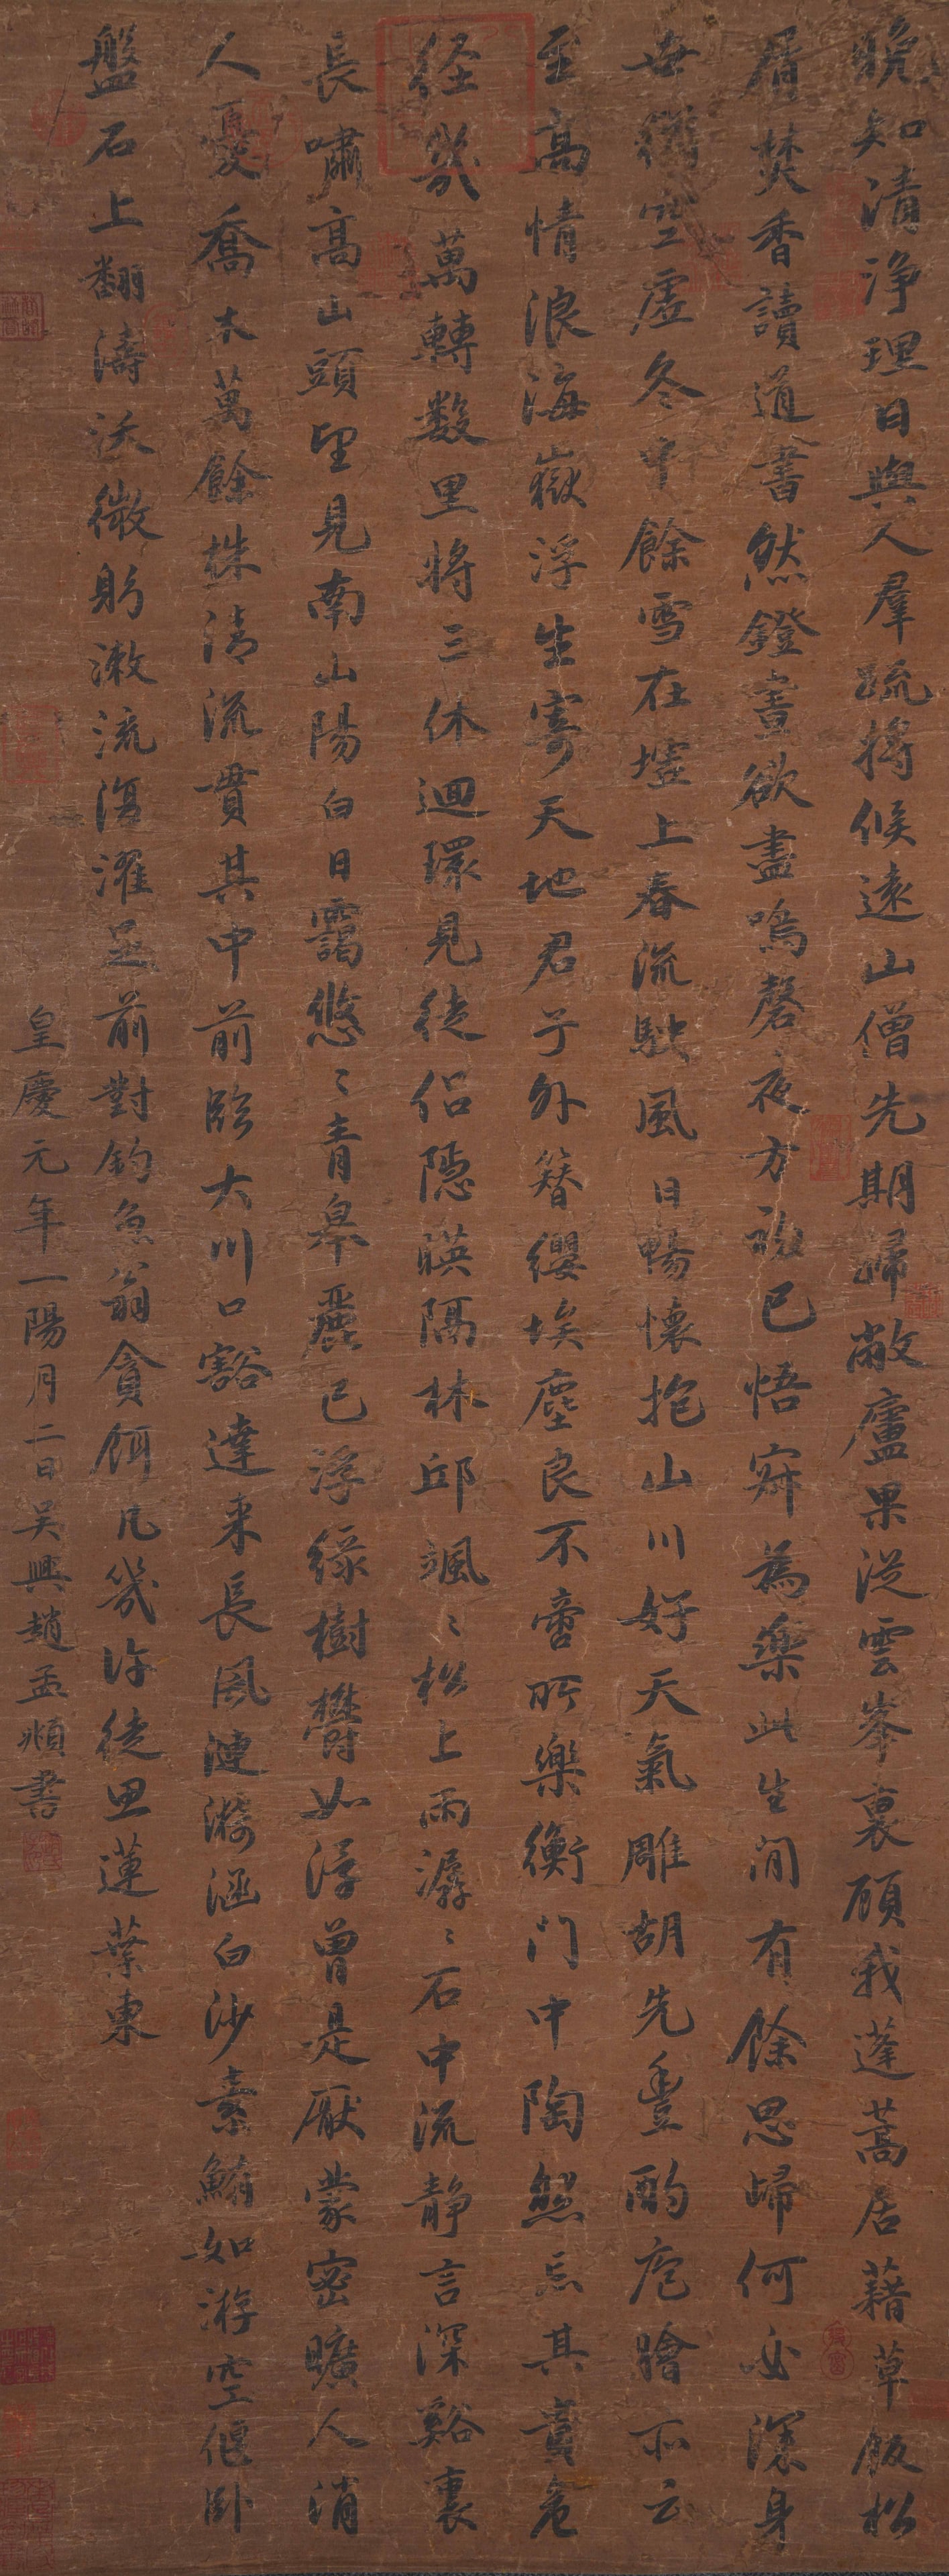 晚知清浄理日與人羣疏將候遠山僧先期歸敝廬果從雲峯裏顧我蓬蒿居藉草飯松
屑焚香讀道書然鐙晝欲盡鳴磬夜方初已悟寂為樂此生閒有餘思歸何必深身
世猶空虛冬中餘雪在墟上春流駛風日暢懷抱山川好天氣雕胡先豐酌庖膾亦云
至高情浪海嶽浮生寄天地君子外簪纓埃塵良不啻所樂衡門中陶然忘其貴危
経幾萬轉數里將三休迴環見徒侶隱暎隔林邱颯〻松上雨潺〻石中流靜言深谿裏
長嘯高山頭望見南山陽白日靄悠〻青皋麗已浄緑樹鬱如浮曾是厭蒙密曠人消
人憂喬木萬餘株清流貫其中前臨大川口豁達來長風漣漪涵白沙素鮪如游空偃臥
盤石上翻濤沃微躬漱流復濯足前對釣魚翁貪餌凡幾許徒思蓮葉東
皇慶元年一陽月二日吳興趙孟頫書